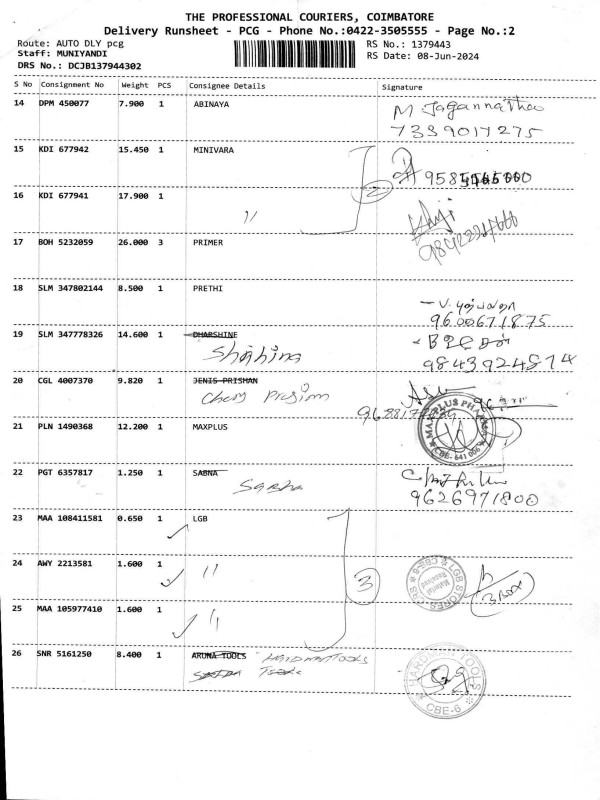 THE PROFESSIONAL COURIERS, COIMBATORE
Delivery Runsheet - PCG - Phone No.:0422-3505555 - Page No.:2
Route: AUTO DLY pcg RS No.: 1379443
Staff: MUNIYANDI RS Date: 08-Jun-2024
DRS No.: DCJB137944302
S No Consignment No Weight PCS Consignee Details Signature
14 DPM 450077 7.900 1 ABINAYA M Jagannathan
7339017275
15 KDI 677942 15.450 1 MINIVARA
2
16 KDI 677941 17.900 1
〃
9842224666
17 BOH 5232059 26.000 3 PRIMER
18 SLM 347802144 8.500 1 PRETHI
9600671875
19 SLM 347778326 14.600 1 DHARSHINE
Shahins
9843924874
20 CGL 4007370 9.820 1 JENIS PRISMAN
Cherry
21 PLN 1490368 12.200 1 MAXPLUS
MAXPLUS PHARMA
CBE-641 006
22 PGT 6357817 1.250 1 SABNA
Sabha
9626971800
23 MAA 108411581 0.650 1 LGB
24 AWY 2213581 1.600 1 〃
3
LGB STORES CBE-6
Material Received
3 Box
25 MAA 105977410 1.600 1 〃
26 SNR 5161250 8.400 1 ARUNA TOOLS HARDMAN TOOLS
Tools
HARDMAN TOOLS
CBE-6